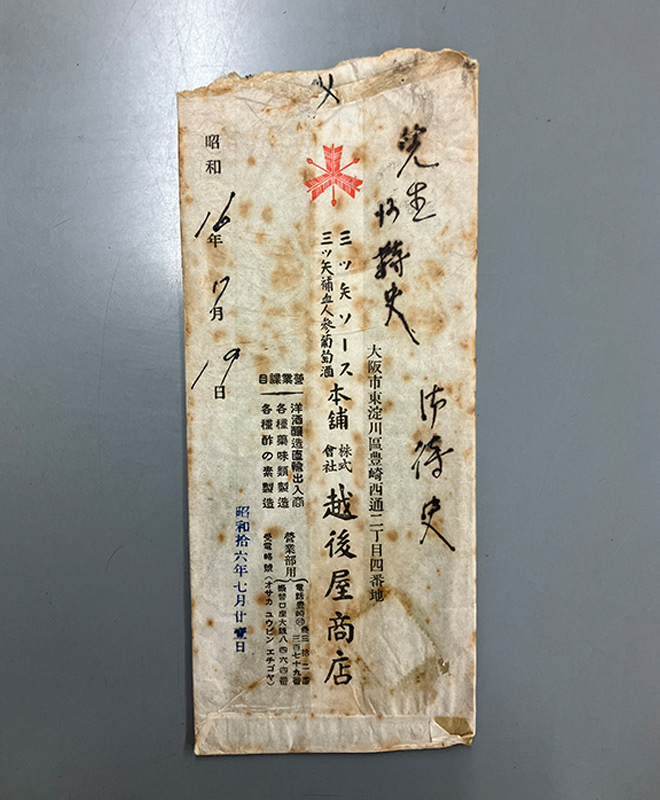 先生
御待史
大阪市東淀川區豊崎西通二丁目四番地
三ツ矢ソース
三ツ矢補血人参葡萄酒
本舗
株式會社
越後屋商店
營業課目
洋酒釀造直輸出入商
各種藥味類製造
各種酢の素製造
營業部用
電話豊崎
三百七十九番
振替口座大阪八四六四番
受電略號(オサカ ユウビン エチゴヤ)
昭和
16年
7月
19日
昭和拾六年七月廿壹日